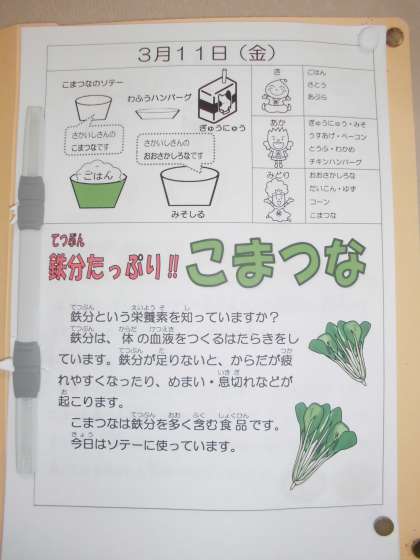 3月11日（金）
こまつなのソテー
わふうハンバーグ
ぎゅうにゅう
さかいしさんの
こまつなです
さかいしさんの
おおさかしろなです
ごはん
みそしる
き
ごはん
さとう
あぶら
あか
ぎゅうにゅう・みそ
うすあげ・ベーコン
とうふ・わかめ
チキンハンバーグ
みどり
おおさかしろな
だいこん・ゆず
コーン
こまつな
てつぶん
鉄分たっぷり!!
こまつな
てつぶん えいようそ し
鉄分という栄養素を知っていますか？
てつぶん からだ けつえき
鉄分は、体の血液をつくるはたらきをし
てつぶん た つか
ています。鉄分が足りないと、からだが疲
いきぎ
れやすくなったり、めまい・息切れなどが
お
起こります。
てつぶん おお ふく しょくひん
こまつなは鉄分を多く含む食品です。
きょう
今日はソテーに使っています。